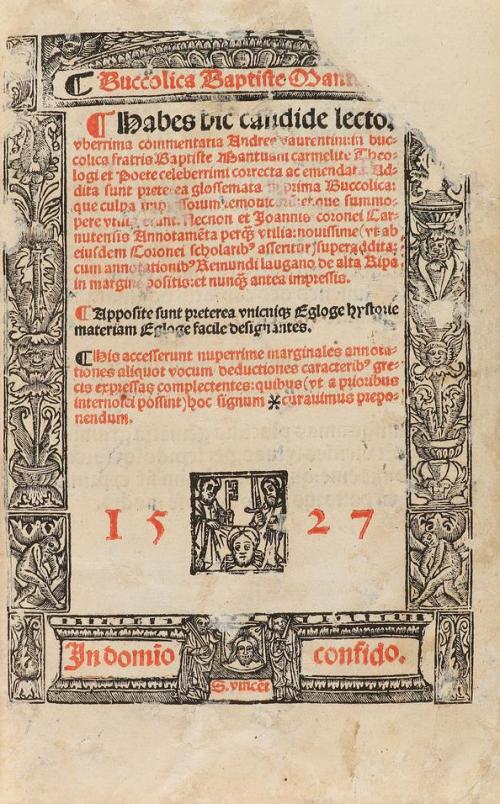 ¶ Buccolica Baptiste Man
¶ Habes hic candide lector
vberrima commentaria Andree vaurentini: in buc-
colica fratris Baptiste Mantuani carmelite Theo-
logi et Poete celeberrimi correcta ac emendata. Ad-
dita sunt preterea glossemata in prima Buccolica:
que culpa impressorum remota: que summo-
pere vtilia erant. Necnon et Joannis coronei Car-
nutensis Annotamēta perqȝ vtilia: nouissime (vt ab
eiusdem Coronei scholaribꝰ asseritur) superaddita:
cum annotationibꝰ Reimundi laugano de alta Ripa
in margine positis: et nunqȝ antea impressis.
¶ Apposite sunt preterea vnicuiqȝ Egloge hystorie
materiam Egloge facile designantes.
¶ His accesserunt nuperrime marginales annota-
tiones aliquot vocum deductiones caracteribꝰ gre-
cis expressas complectentes: quibus (vt a prioribus
internosci possint) hoc signum * curauimus prepo-
nendum.
1527
In domīo confido.
S. vincēt